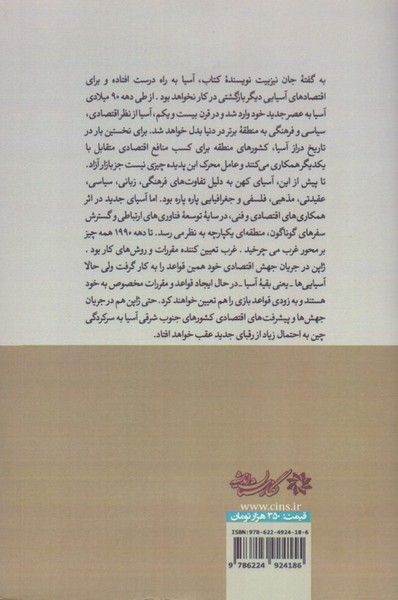 به گفتهٔ جان نیزبیت نویسندهٔ کتاب، آسیا به راه درست افتاده و برای
اقتصادهای آسیایی دیگر بازگشتی در کار نخواهد بود . از طی دهه ۹۰ میلادی
آسیا به عصر جدید خود وارد شد و در قرن بیست و یکم، آسیا از نظر اقتصادی،
سیاسی و فرهنگی به منطقهٔ برتر در دنیا بدل خواهد شد. برای نخستین بار در
تاریخ دراز آسیا، کشورهای منطقه برای کسب منافع اقتصادی متقابل با
یکدیگر همکاری می‌کنند و عامل محرک این پدیده چیزی نیست جز بازار آزاد.
تا پیش از این، آسیای کهن به دلیل تفاوت‌های فرهنگی، زبانی، سیاسی،
عقیدتی، مذهبی، فلسفی و جغرافیایی پاره پاره بود. اما آسیای جدید در اثر
همکاری‌های اقتصادی و فنی، در سایهٔ توسعهٔ فناوری‌های ارتباطی و گسترش
سفرهای گوناگون، منطقه‌ای یکپارچه به نظر می رسد. تا دهه ۱۹۹۰ همه چیز
بر محور غرب می چرخید . غرب تعیین کننده مقررات و روش‌های کار بود .
ژاپن در جریان جهش اقتصادی خود همین قواعد را به کار گرفت ولی حالا
آسیایی‌ها ـ یعنی بقیهٔ آسیا ـ در حال ایجاد قواعد و مقررات مخصوص به خود
هستند و به زودی قواعد بازی را هم تعیین خواهند کرد. حتی ژاپن هم در جریان
جهش‌ها و پیشرفت‌های اقتصادی کشورهای جنوب شرقی آسیا به سرکردگی
چین به احتمال زیاد از رقبای جدید عقب خواهد افتاد.
www.cins.ir
قیمت: ۳۵۰ هزار تومان
ISBN: 978-622-4924-18-6
9 786224 924186